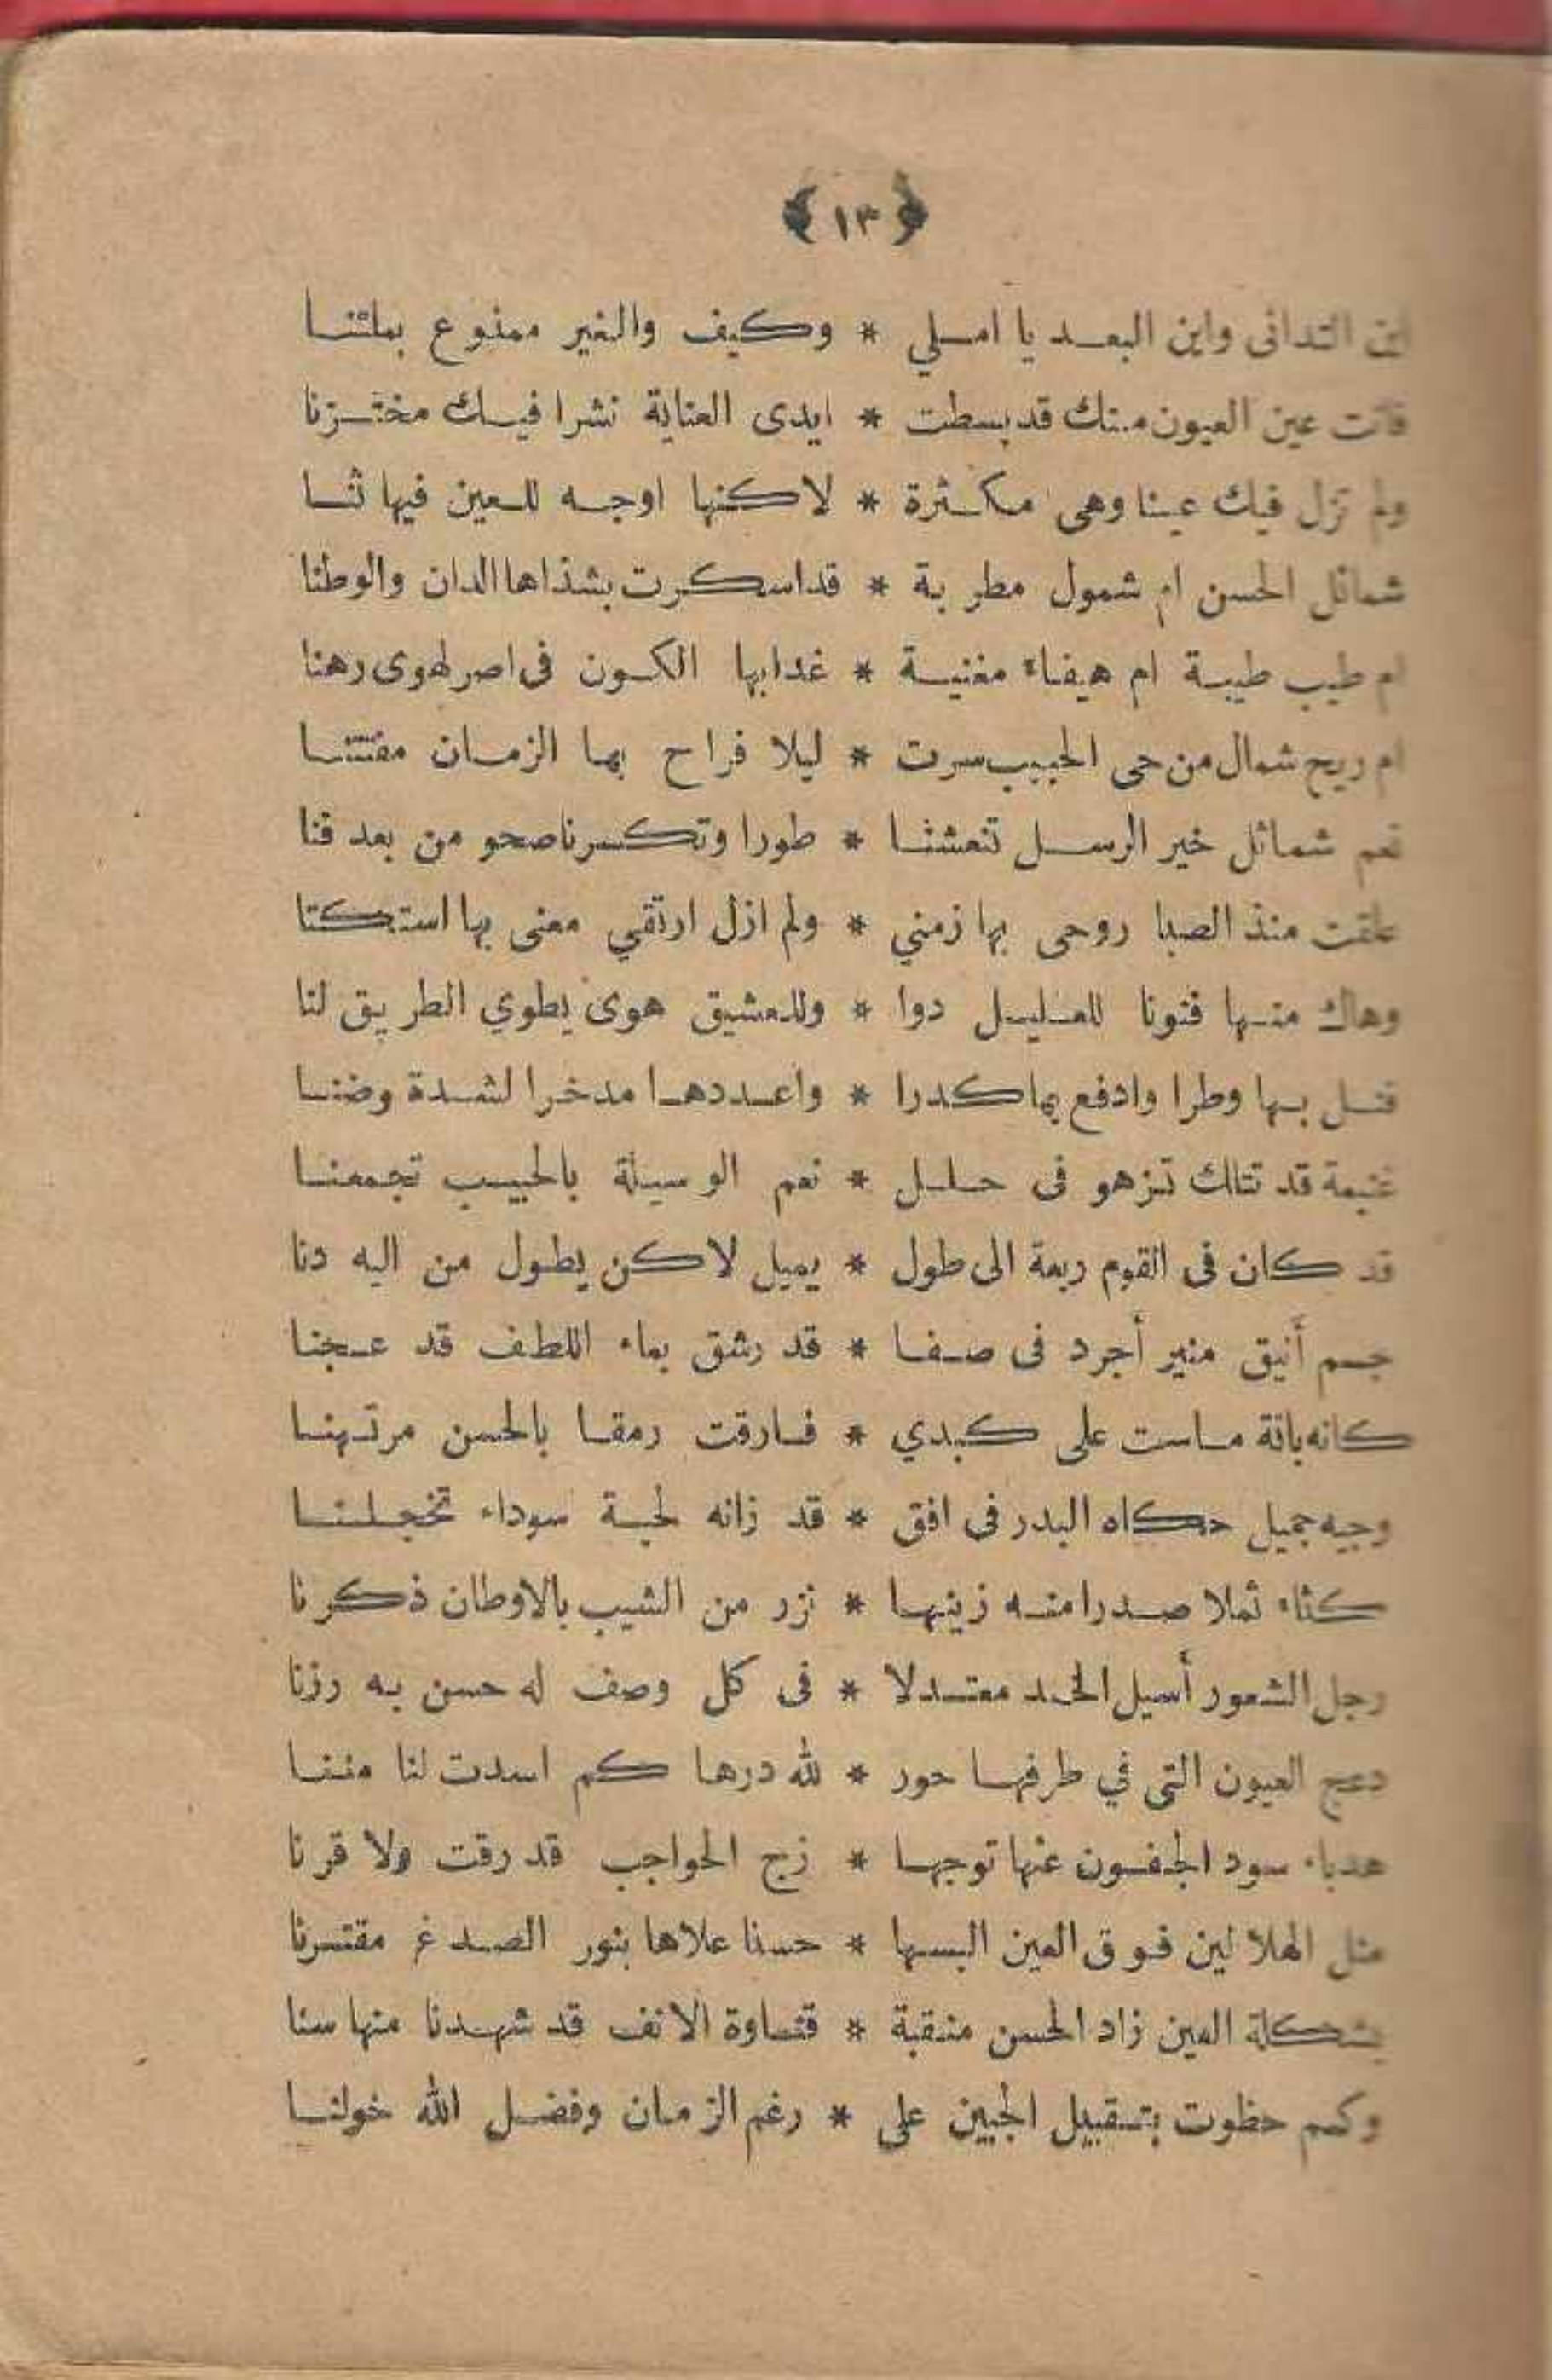 ﴿ ١٣ ﴾
اين التدانى واين البعد يا املي * وكيف والغير ممنوع بملتنا
فانت عين العيون منك قد بسطت * ايدى العناية نشرا فيك مختزنا
ولم تزل فيك عينا وهى مكثرة * لاكنها اوجه للعين فيها ثنا
شمائل الحسن ام شمول مطربة * قد اسكرت بشذاها الدان والوطنا
ام طيب طيبة ام هيفاء مغنية * غدا بها الكون فى اصر لهوى رهنا
ام ريح شمال من حى الحبيب سرت * ليلا فراح بها الزمان مفتتنا
نعم شمائل خير الرسل تنعشنا * طورا وتكسرنا صحو من بعد فنا
علقت منذ الصبا روحى بها زمني * ولم ازل ارتقي معنى بها استكتا
وهاك منها فنونا للعليل دوا * وللعشيق هوى يطوي الطريق لنا
فنل بها وطرا وادفع بها كدرا * واعددها مدخرا لشدة وضنا
غنيمة قد تتلك تزهو فى حلل * نعم الوسيلة بالحبيب تجمعنا
قد كان فى القوم ربعة الى طول * يميل لاكن يطول من اليه دنا
جسم أنيق منير أجرد فى صفا * قد رشق بماء اللطف قد عجنا
كانه بانة ماست على كبدي * فارقت رمقا بالحسن مرتهنا
وجيه جميل حكاه البدر فى افق * قد زانه لحية سوداء تخجلنا
كثاء تملا صدرا منه زينها * نزر من الشيب بالاوطان ذكرنا
رجل الشعور أسيل الخد معتدلا * فى كل وصف له حسن به رزنا
دعج العيون التى في طرفها حور * لله درها كم اسدت لنا مننا
هدباء سود الجفون عنها توجها * زج الحواجب قد رقت ولا قرنا
مثل الهلالين فوق العين البسها * حسنا علاها بنور الصدغ مقترنا
بشكلة العين زاد الحسن منقبة * قنــاوة الانف قد شهدنا منها سنا
وكم حظوت بتقبيل الجبين على * رغم الزمان وفضل الله خولنا